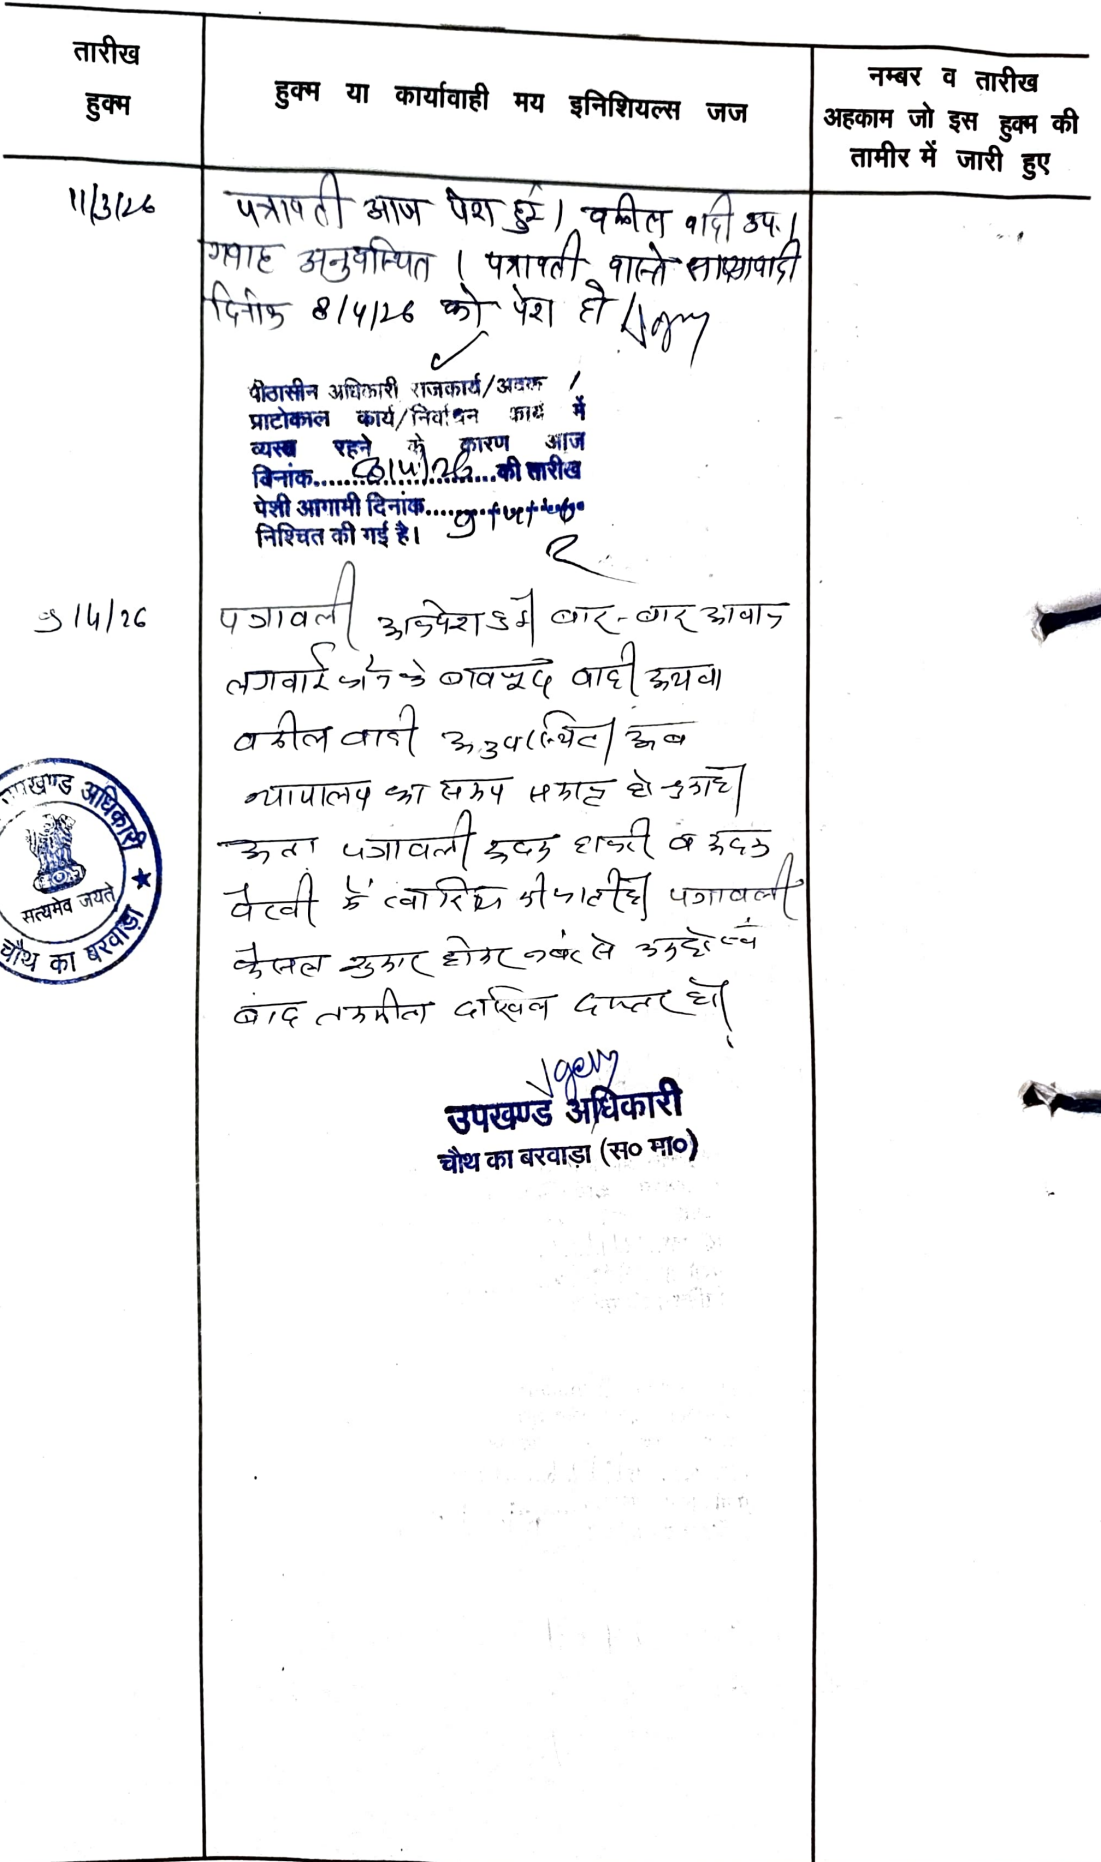 तारीख
हुक्म
हुक्म या कार्यावाही मय इनिशियल्स जज
नम्बर व तारीख
अहकाम जो इस हुक्म की
तामीर में जारी हुए
11/3/26
पत्रावली आज पेश हुई। वकील वादी उप.।
गवाह अनुपस्थित। पत्रावली वास्ते साक्ष्यवादी
दिनांक 8/4/26 को पेश हो
पीठासीन अधिकारी राजकार्य/अवकाश/
प्रोटोकाल कार्य/निर्वाचन कार्य में
व्यस्त रहने के कारण आज
दिनांक 8/4/26 की तारीख
पेशी आगामी दिनांक
निश्चित की गई है।
9/4/26
पत्रावली आज पेश हुई। बार-बार आवाज
लगवाई जाने के बावजूद वादी अथवा
वकील वादी अनुपस्थित। अब
न्यायालय का समय समाप्त हो चुका है।
अतः पत्रावली अदम हाजरी व अदम
पैरवी में खारिज की जाती है। पत्रावली
फैसल शुमार होकर नंबर से कम होवे
बाद तकमील दाखिल दफ्तर हो।
उपखण्ड अधिकारी
चौथ का बरवाड़ा
सत्यमेव जयते
उपखण्ड अधिकारी
चौथ का बरवाड़ा (स० मा०)